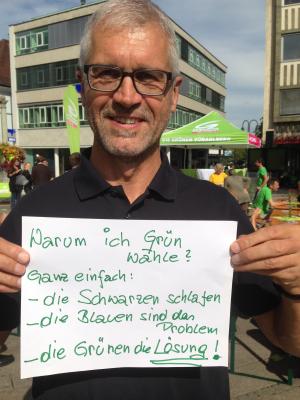 DIE GRÜNEN VORARLBERG
Warum ich Grün
wähle?
Ganz einfach:
- die Schwarzen schlafen
- die Blauen sind das
Problem
- die Grünen die Lösung!